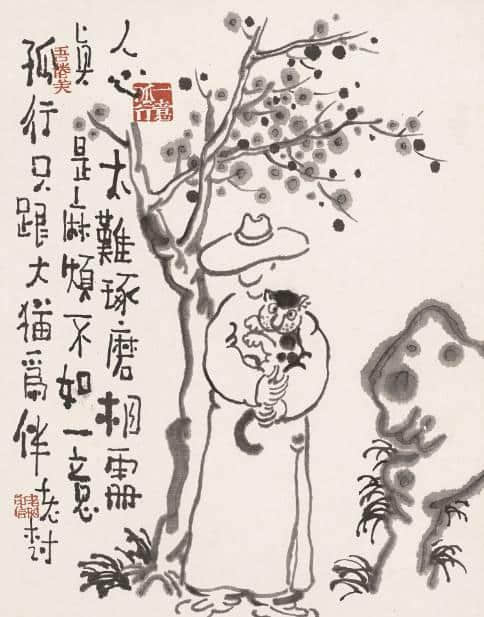 人心太難琢磨相處
眞是麻煩不如一意
孤行只跟大猫爲伴
老树
一意孤行